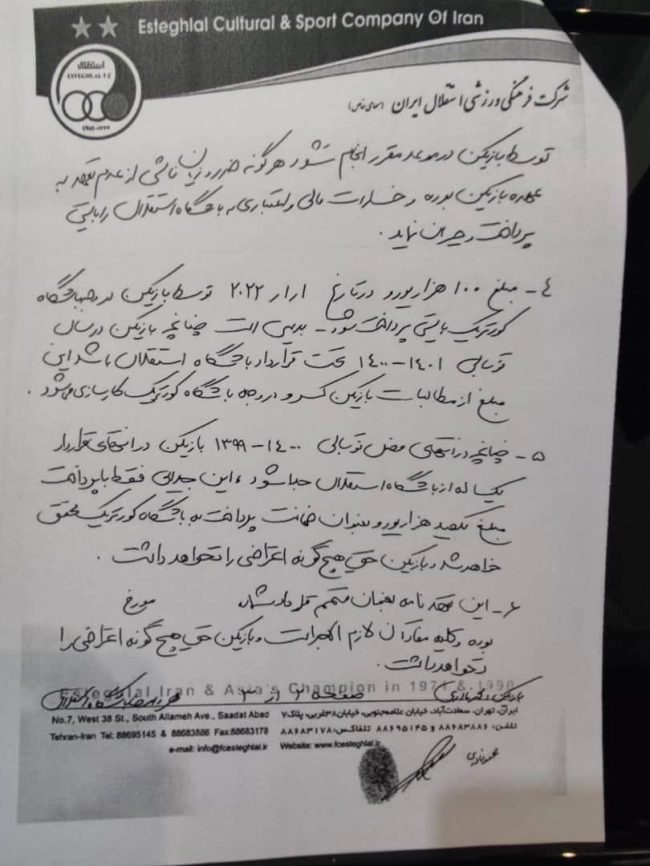 Esteghlal Cultural & Sport Company Of Iran
استقلال
ESTEGHLAL F.C
شرکت فرهنگی ورزشی استقلال ایران (سهامی خاص)
توسط بازیکن در موعد مقرر انجام نشود هرگونه ضرر و زیان ناشی از عدم تعهد به
عهده بازیکن بوده و خسارات مالی و اعتباری به باشگاه استقلال را بایستی
پرداخت و جبران نماید.
۴- مبلغ ۱۰۰ هزار یورو در تاریخ ۲۰۲۲ توسط بازیکن در وجه باشگاه
کورتریک بایستی پرداخت شود - بدیهی است چنانچه بازیکن در سال
فوتبالی ۱۴۰۱-۱۴۰۰ تحت قرارداد باشگاه استقلال باشد این
مبلغ از مطالبات بازیکن کسر و در وجه باشگاه کورتریک کارسازی میشود.
۵- چنانچه در انتهای فصل فوتبالی ۱۴۰۰-۱۳۹۹ بازیکن در انتهای قرارداد
یکساله از باشگاه استقلال جدا شود، این جدایی فقط با پرداخت
مبلغ یکصد هزار یورو بعنوان ضمانت پرداخت به باشگاه کورتریک محقق
خواهد شد و بازیکن حق هیچ گونه اعتراضی را نخواهد داشت.
۶- این تعهد نامه بعنوان متمم قرارداد مورخ
بوده و کلیه مفاد آن لازم الاجراست و بازیکن حق هیچ گونه اعتراضی را
نخواهد داشت.
Esteghlal Iran & Asia's Champion in 1971 & 1990
صفحه ۲ از ۲
No.7, West 38 St., South Allameh Ave., Saadat Abad
ایران، تهران، سعادت‌آباد، خیابان علامه جنوبی، خیابان ۳۸ غربی، پلاک ۷
Tehran-Iran Tel: 88695145 & 88683886 Fax:88683178
تلفن: ۸۸۶۸۳۸۸۶ و ۸۸۶۹۵۱۴۵ تلفاکس: ۸۸۶۸۳۱۷۸
e-mail: info@fcesteghlal.ir Website: www.fcesteghlal.ir
محمد نادری